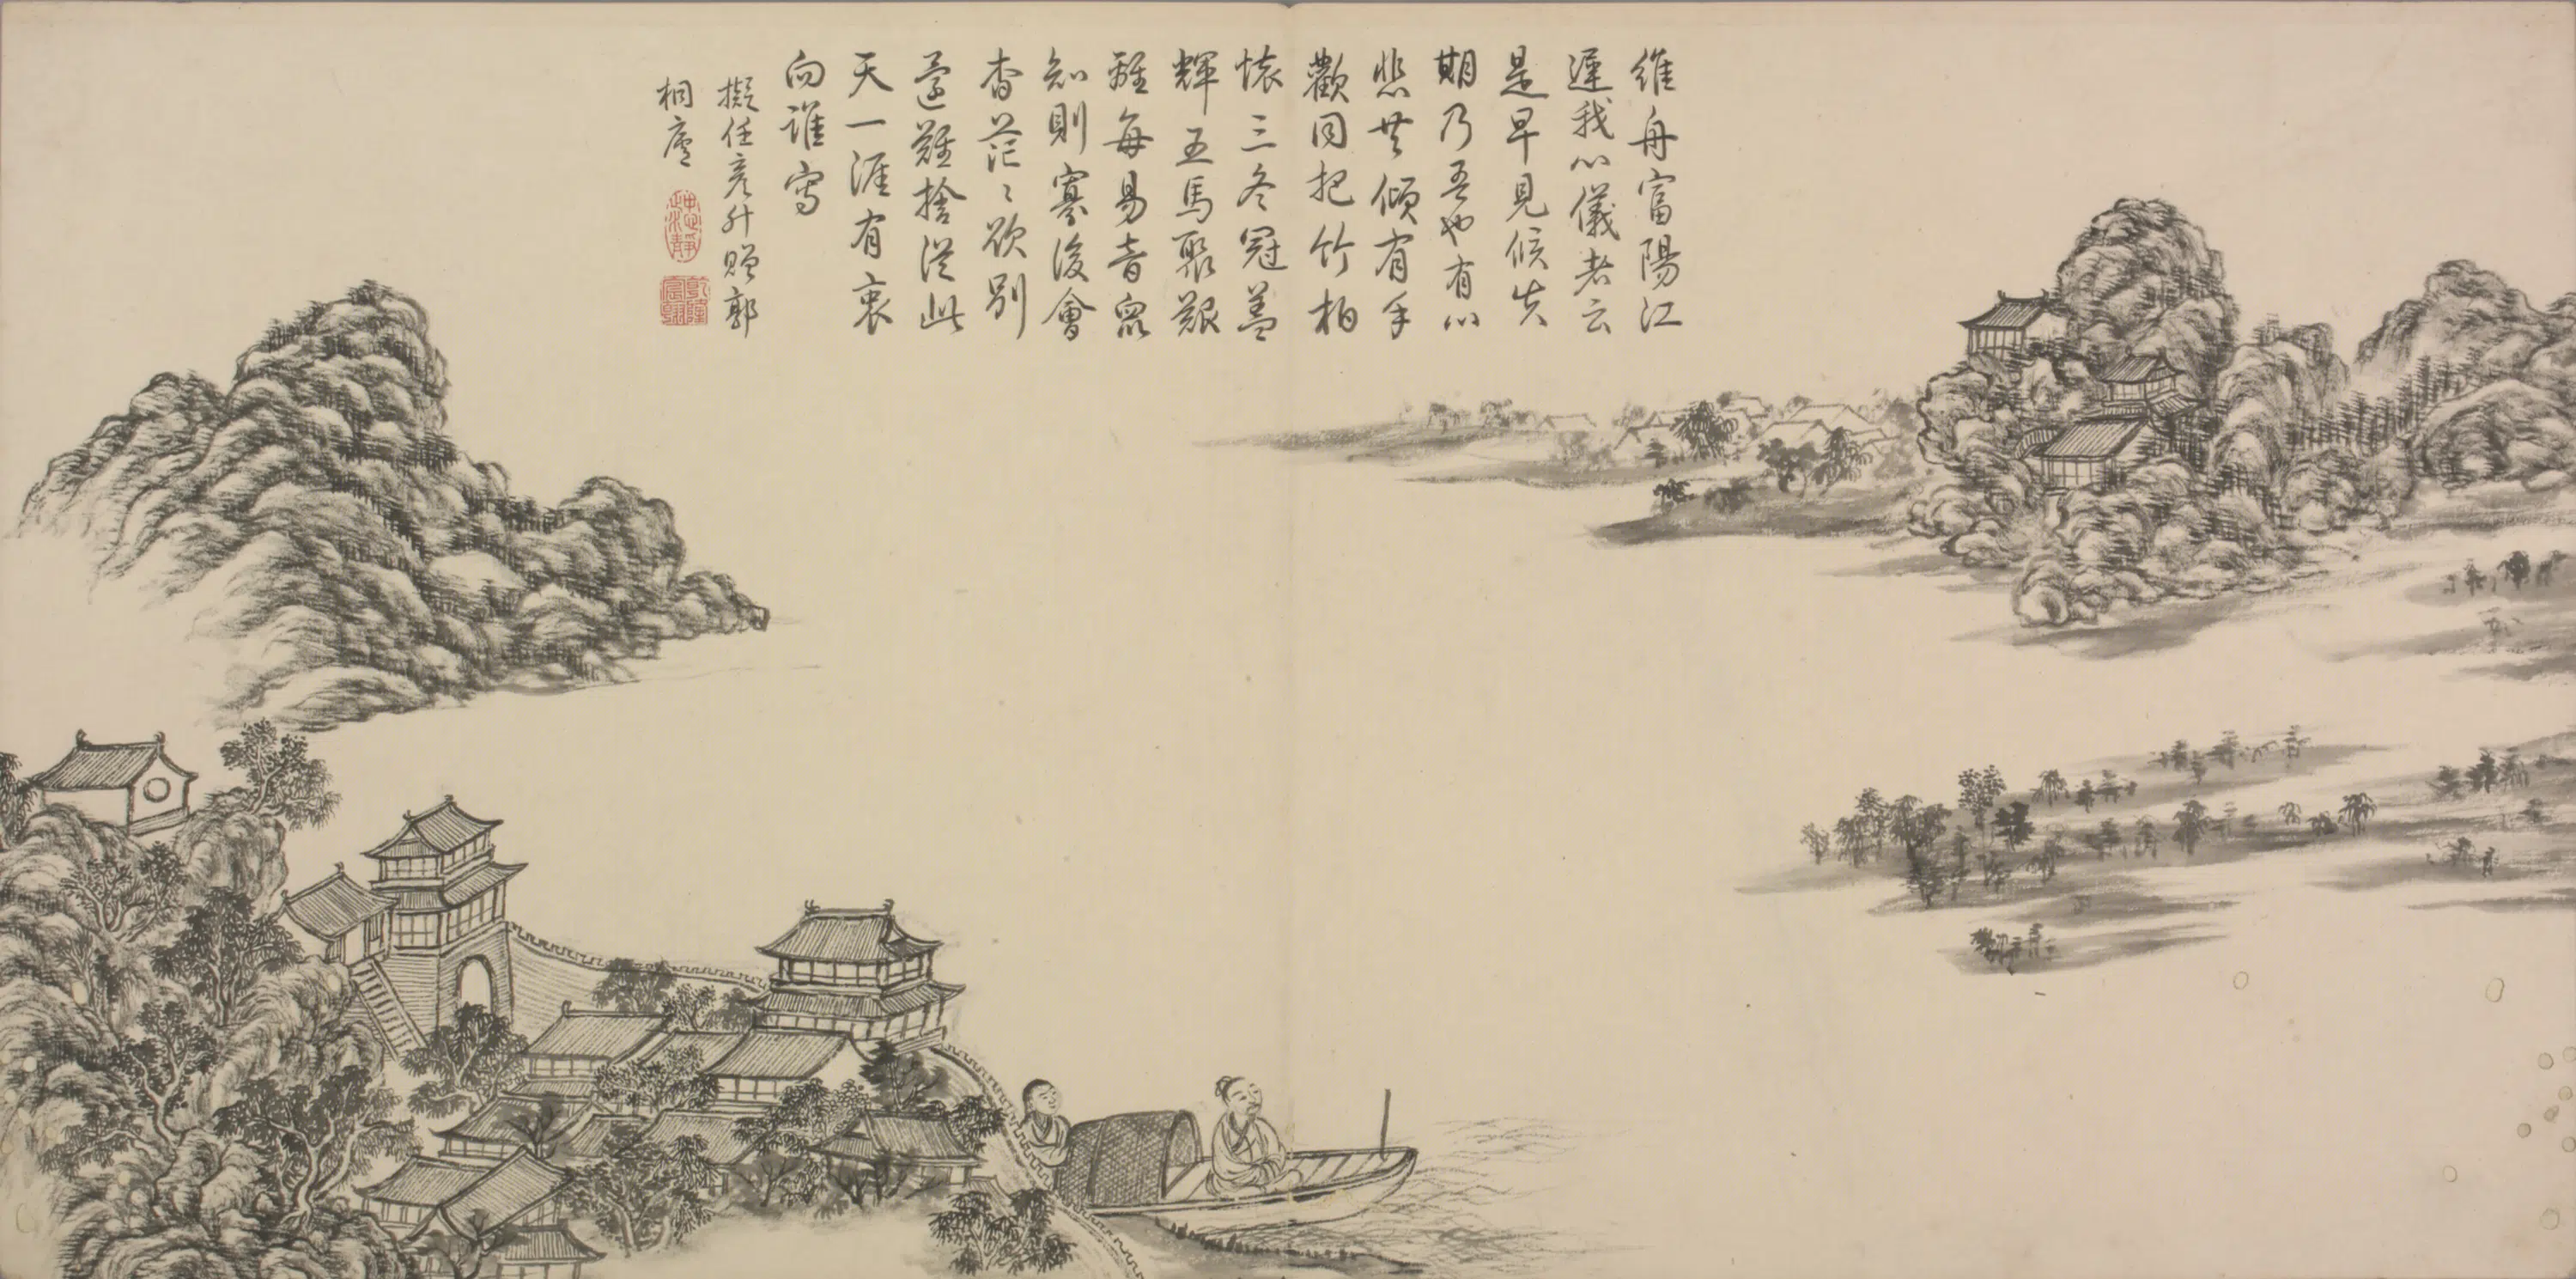 維舟富陽江
遲我心儀者云
是早見候失
期乃吾也有心
悲共傾有手
歡同把竹柏
懷三冬冠盖
輝五馬聚艱
離每易音寡
知則寡後會
杳茫〻欲別
還難捨從此
天一涯有衷
向誰寫
擬任彥升贈郭
桐廬
乾隆
宸翰